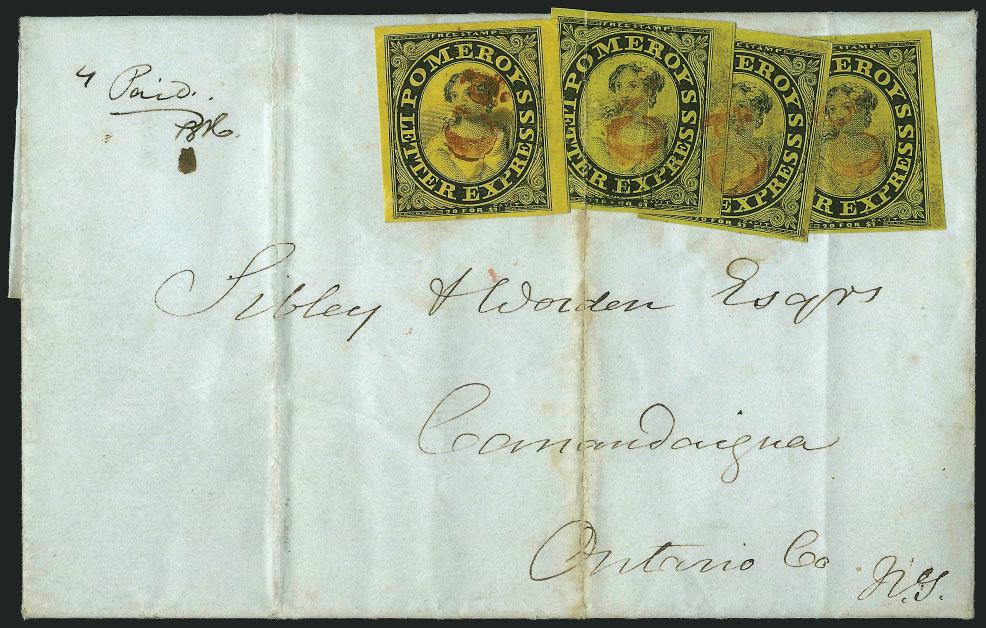 4 Paid.
FREE STAMP
POMEROY'S
LETTER EXPRESS
20 FOR $1
FREE STAMP
POMEROY'S
LETTER EXPRESS
20 FOR $1
STAMP
MEROY'S
R EXPRESS
20 FOR $1
STAMP
MEROY'S
R EXPRESS
20 FOR $1
Sibley & Worden Esqrs
Canandaigua
Ontario Co
N.Y.